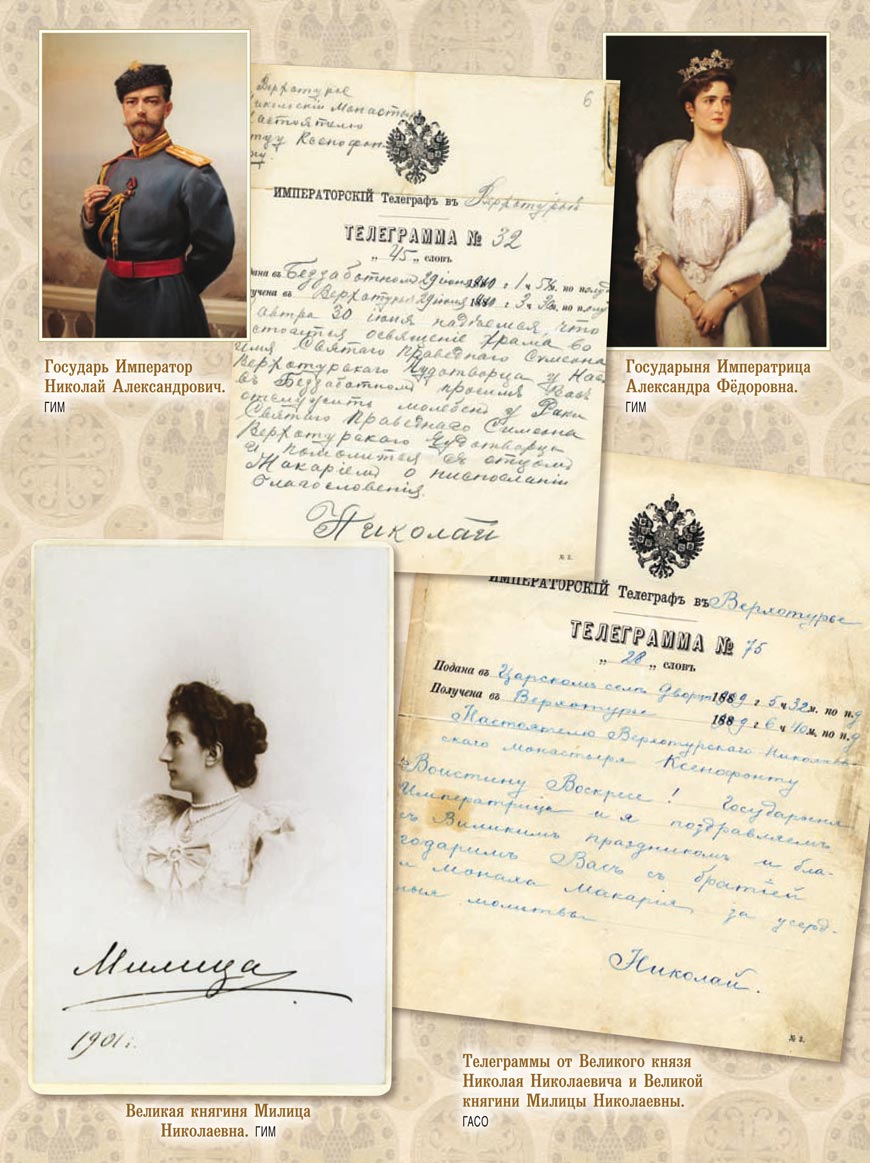 Верхотурье
6
ИМПЕРАТОРСКІЙ Телеграфъ въ Верхотурьѣ
ТЕЛЕГРАММА № 32
„ 45 „ словъ
Беззаботномъ 29 іюня 1 ч
получена въ Верхотурье 29 іюня 3 ч
автра 30 іюня надѣемся, что
стоится освященіе храма во
имя Святаго Праведнаго Симеона
Верхотурскаго Чудотворца у Насъ
въ Беззаботномъ просимъ Васъ
отслужить молебенъ у Раки
Святаго Праведнаго Симеона
Верхотурскаго Чудотворца
и помолиться съ отцомъ
Макаріемъ о ниспосланіи
благословенія.
Николай
№ 3.
Государь Император
Николай Александрович.
ГИМ
Государыня Императрица
Александра Фёдоровна.
ГИМ
ИМПЕРАТОРСКІЙ Телеграфъ въ Верхотурье
ТЕЛЕГРАММА № 75
„ 28 „ словъ
Подана въ Царскомъ селѣ Дворт 9 г 5 ч 32 м. по п.д
Получена въ Верхотурье 9 г 6 ч 40 м. по п.д
Настоятелю Верхотурскаго Николаев-
скаго монастыря Ксенофонту
Воистину Воскресе! Государыня
Императрица и я поздравляемъ
съ Великимъ праздникомъ и бла-
годаримъ Васъ съ братіей
и монаха Макарія за усерд-
ныя молитвы
Николай.
№ 3.
Милица
1901 г.
Великая княгиня Милица
Николаевна. ГИМ
Телеграммы от Великого князя
Николая Николаевича и Великой
княгини Милицы Николаевны.
ГАСО